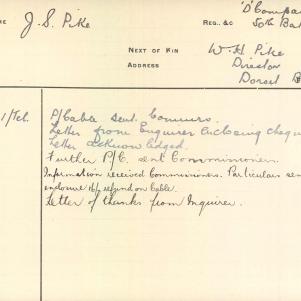 ME J. S. Pike REG., &C 'D' Compa
50th Bat
NEXT OF KIN W. H. Pike
ADDRESS Director
Dorset
1/Feb. P/Cable sent Commrs.
Letter from Enquirer enclosing cheq
Letter acknowledged.
Further P/C. sent Commissioners.
Information received Commissioners. Particulars sen
enclosure refund on Cable.
Letter of thanks from Inquirer.